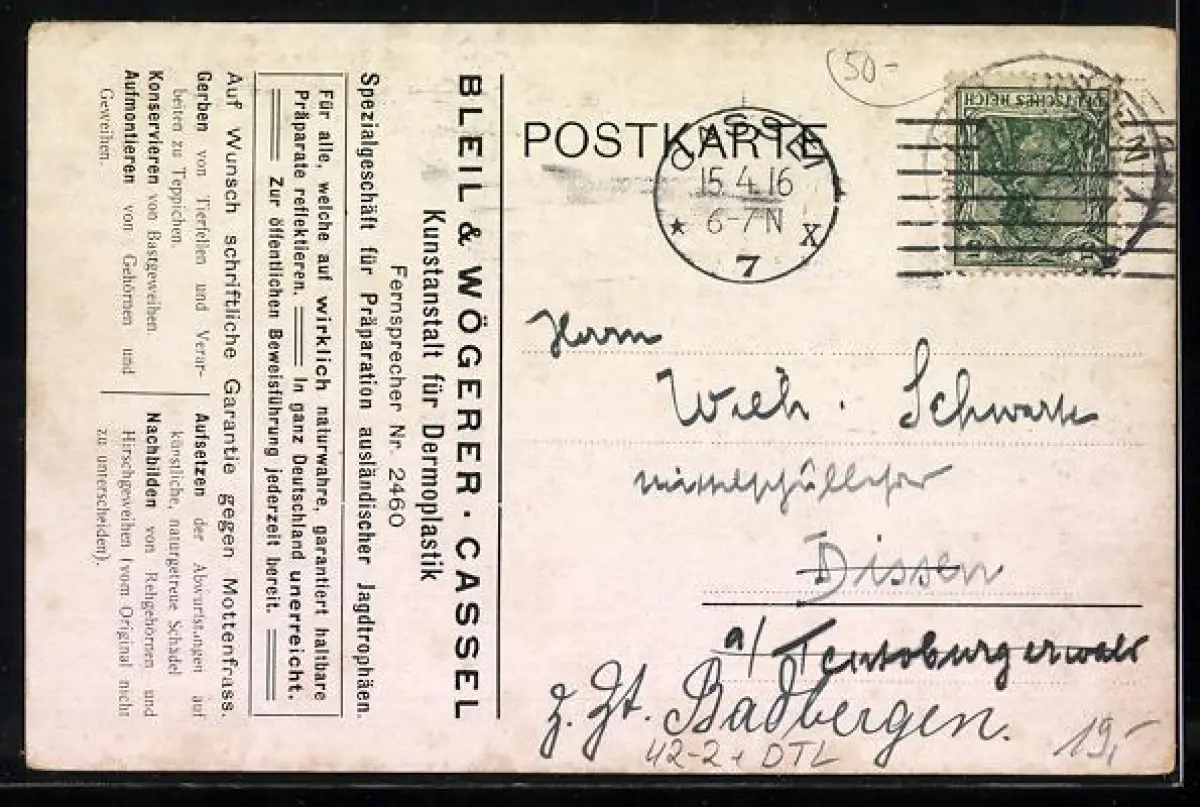 BLEIL & WÖGERER · CASSEL
Kunstanstalt für Dermoplastik
Fernsprecher Nr. 2460
Spezialgeschäft für Präparation ausländischer Jagdtrophäen.
Für alle, welche auf wirklich naturwahre, garantiert haltbare
Präparate reflektieren. In ganz Deutschland unerreicht.
Zur öffentlichen Beweisführung jederzeit bereit.
Auf Wunsch schriftliche Garantie gegen Mottenfrass.
Gerben von Tierfellen und Verar-
beiten zu Teppichen.
Konservieren von Bastgeweihen.
Aufmontieren von Gehörnen und
Geweihen.
Aufsetzen der Abwurfstangen auf
künstliche, naturgetreue Schädel
Nachbilden von Rehgehörnen und
Hirschgeweihen (vom Original nicht
zu unterscheiden).
50-
POSTKARTE
DEUTSCHES REICH
15.4.16
6-7N
* X
7
Herrn
Wilh. Schwarte
Dissen
a/ Teutoburgerwald
z. Zt. Badbergen.
42-2 + DTL
19,-